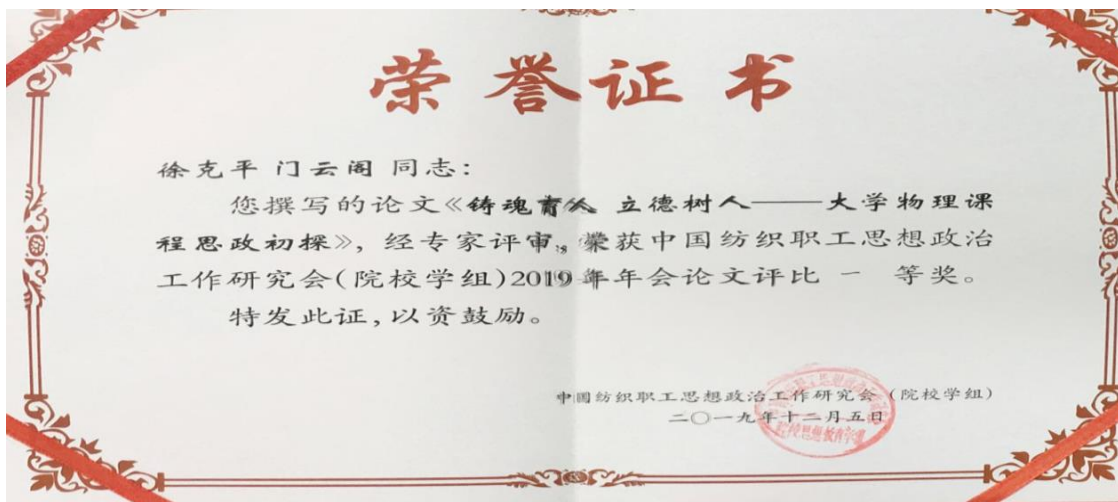 荣誉证书
徐克平 门云阁 同志:
您撰写的论文《铸魂育人 立德树人——大学物理课
程思政初探》,经专家评审,荣获中国纺织职工思想政治
工作研究会(院校学组)2019年年会论文评比 一 等奖。
特发此证,以资鼓励。
中国纺织职工思想政治工作研究会(院校学组)
二〇一九年十二月五日